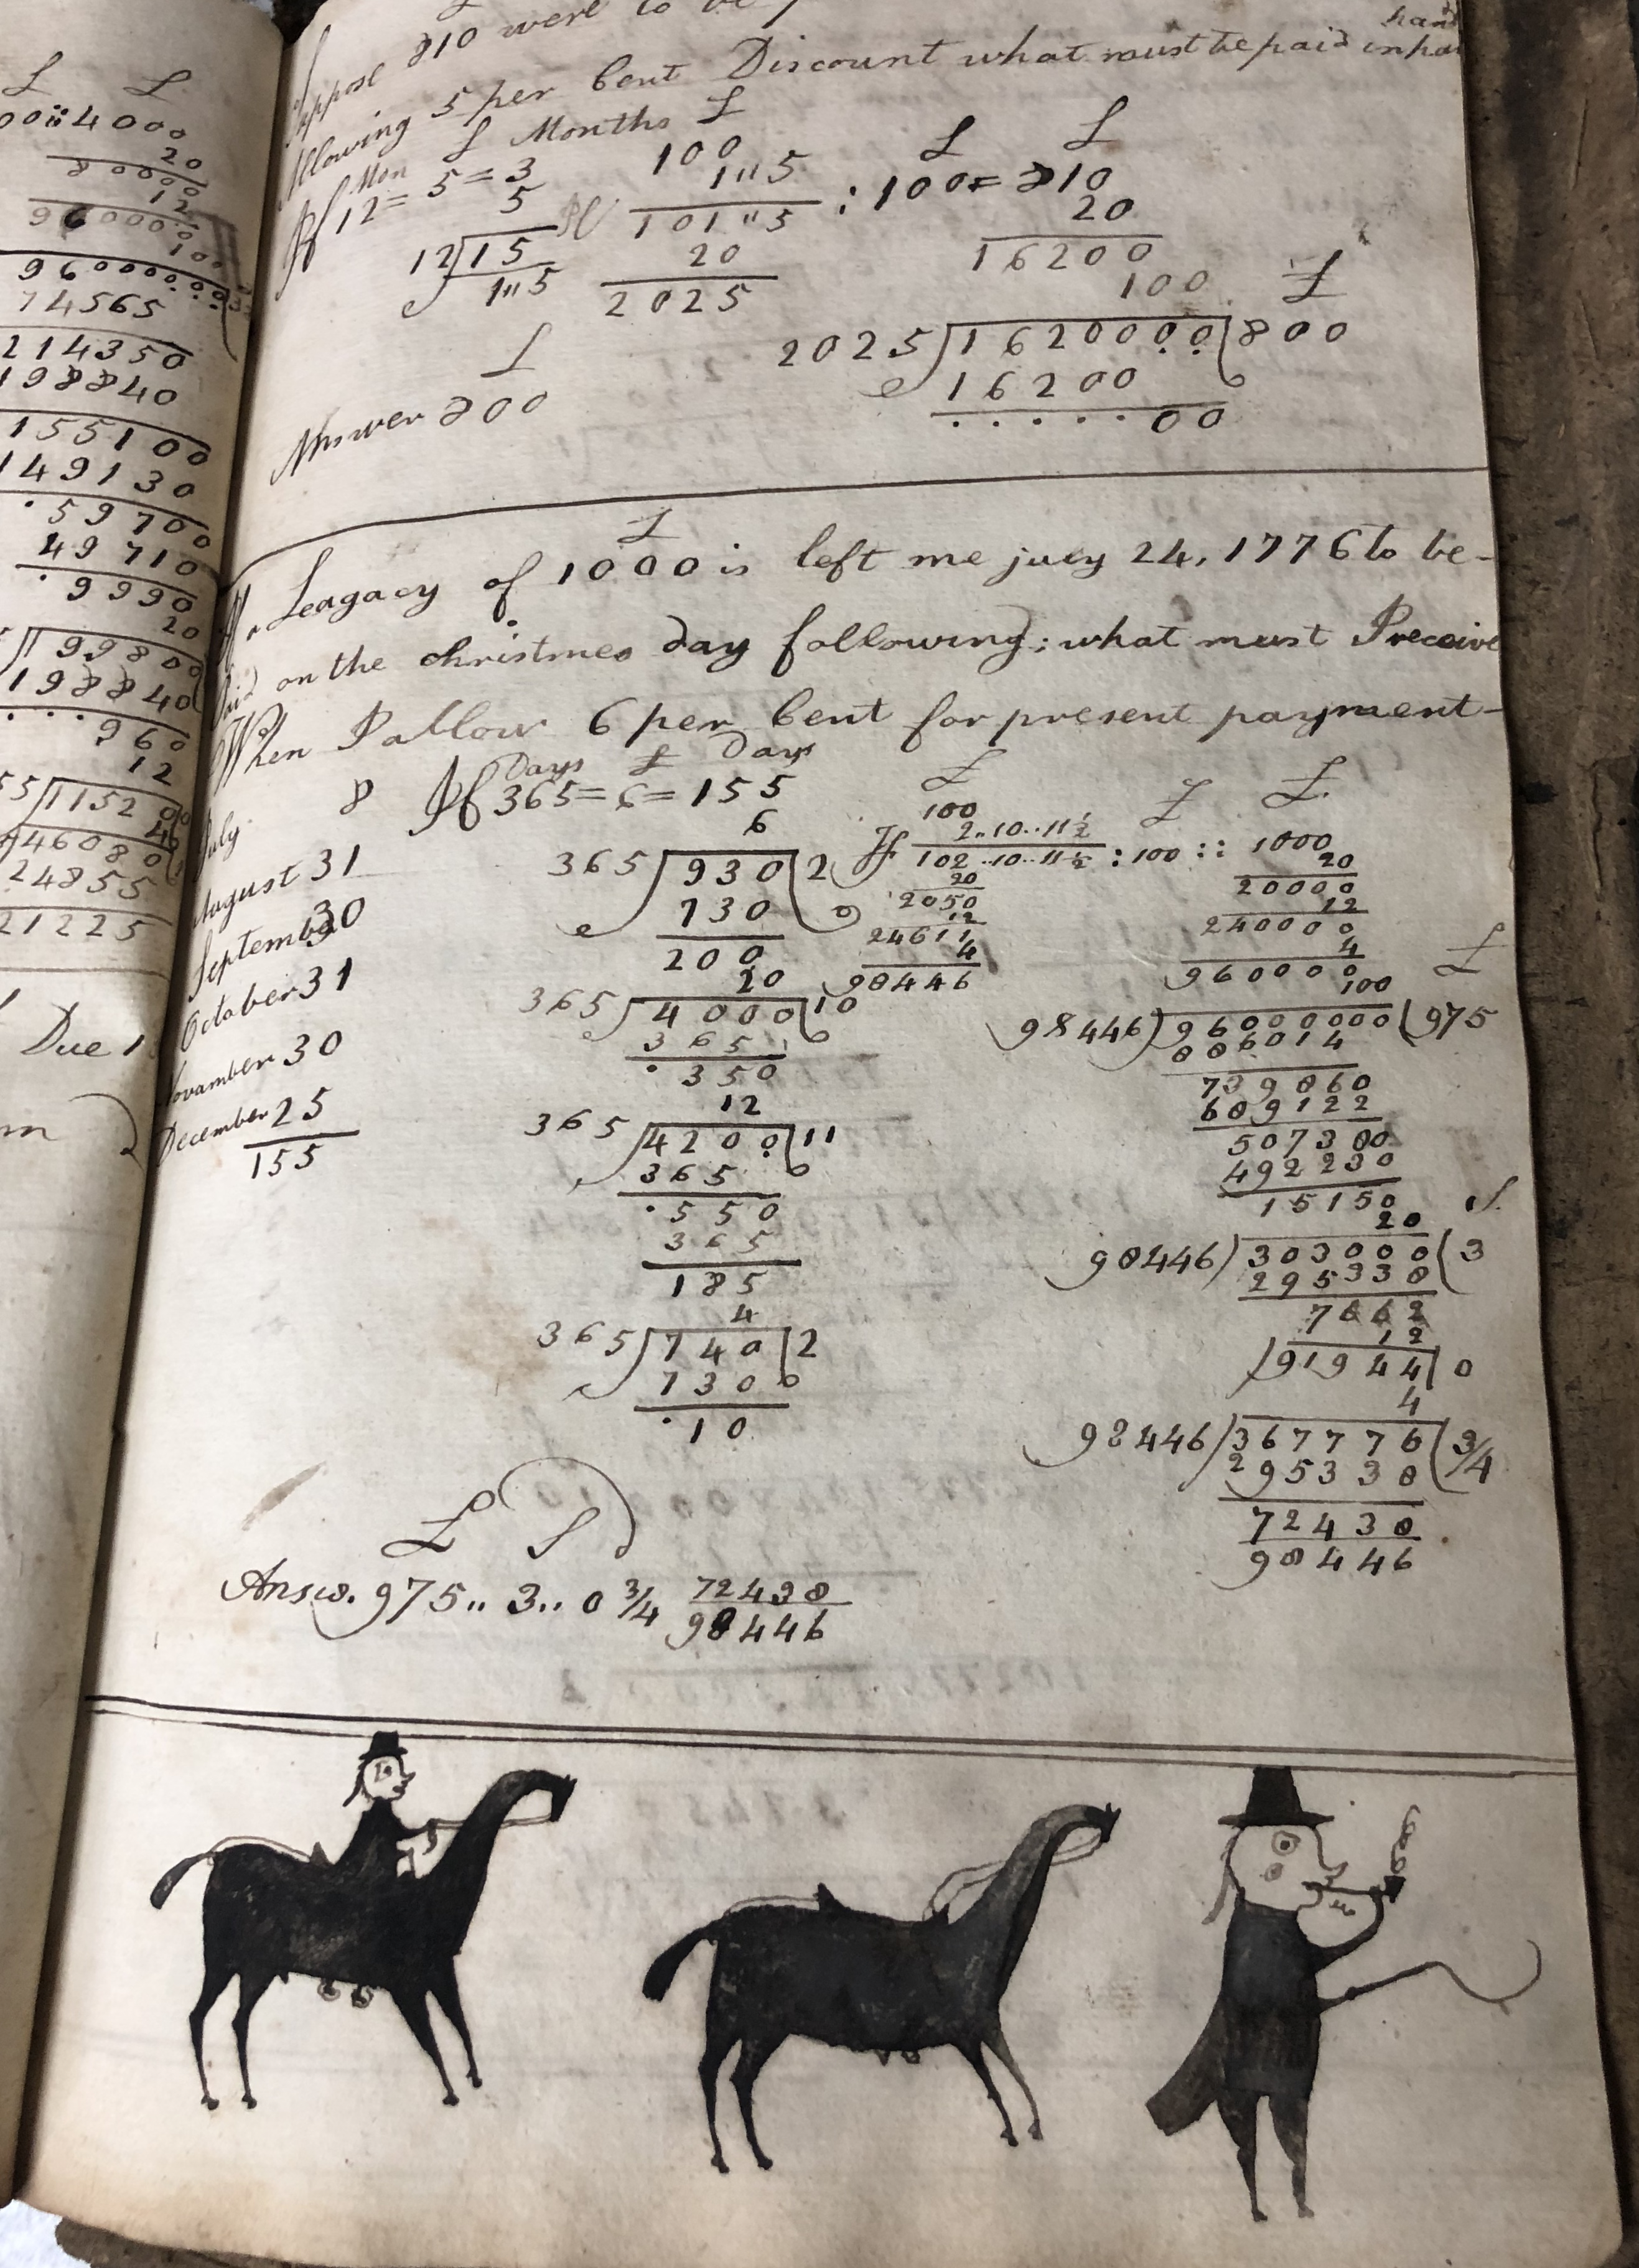 £ £
00::4000
20
80000
12
960000
100
96000000
74565
214350
198840
155100
149130
.5970
49710
.9990
20
199800
198840
...960
12
11520
4
46080
24855
21225
Due
810 were to be
Suppose
Allowing 5 per Cent Discount what must be paid in han
hand
Mon £ Months £
If 12 = 5 = 3
5
12)15
1"5
100
1"5
101"5 : 100 = 810
20
2025
£ £
20
16200
100
£
2025)1620000(800
16200
.....00
£
Answer 800
£
A Leagacy of 1000 is left me juey 24, 1776 to be-
Paid on the christmes day following: what must I receive
When I allow 6 per Cent for present payment-
Days £ Days
If 365 = 6 = 155
6
July 8
August 31
September 30
October 31
Novamber 30
December 25
155
365)930(2
730
200
20
365)4000(10
365
.350
12
365)4200(11
365
.550
365
185
4
365)740(2
730
.10
£ £ £
100
2..10..11½
If 102..10..11½ : 100 :: 1000
20
2050
12
24611
4
98446
20
20000
12
240000
4
960000
100
£
98446)96000000(975
886014
739860
689122
507380
492230
15150
20
S.
98446)303000(3
295338
7662
12
91944(0
4
98446)367776(3/4
295338
72438
98446
£ S
Answ. 975.. 3.. 0 3/4 72438
98446